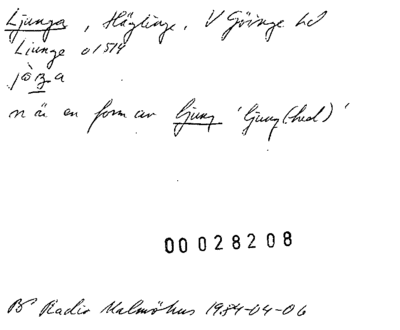 Ljunga, Häglinge, V Göinge hd
Liunge o1514
n ä en form av ljung 'ljung(hed)'
00028208
BP Radio Malmöhus 1984-04-06